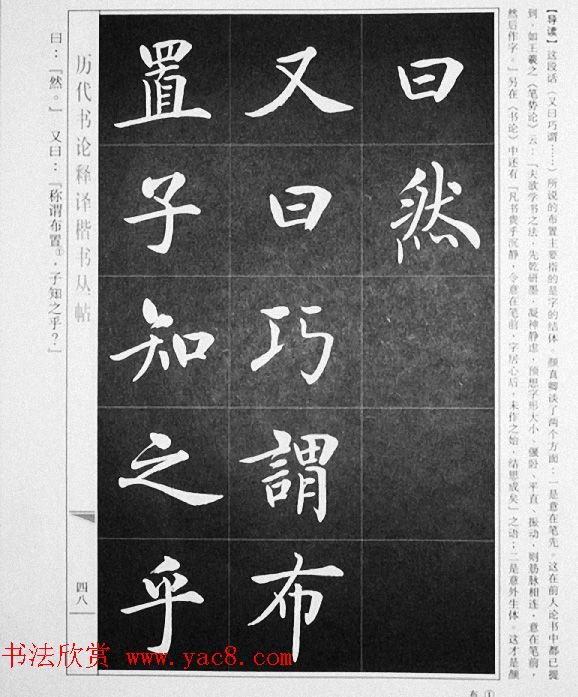 【导读】这段话（又曰巧谓……）所说的布置主要指的是字的结体。颜真卿谈了两个方面：一是意在笔先。这在前人论书中都已提
到，如王羲之《笔势论》云：「夫欲学书之法，先乾研墨，凝神静虑，预想字形大小、偃卧、平直、振动，则筋脉相连，意在笔前，
然后作字。」另在《书论》中还有「凡书贵乎沉静，令意在笔前，字居心后，未作之始，结思成矣」之语；二是意外生体。这才是颜
曰然
又曰巧謂布
置子知之乎
历代书论释译楷书丛帖
四八
曰：「然。」又曰：「称谓布置①，子知之乎？」
①
书法欣赏 www.yac8.com